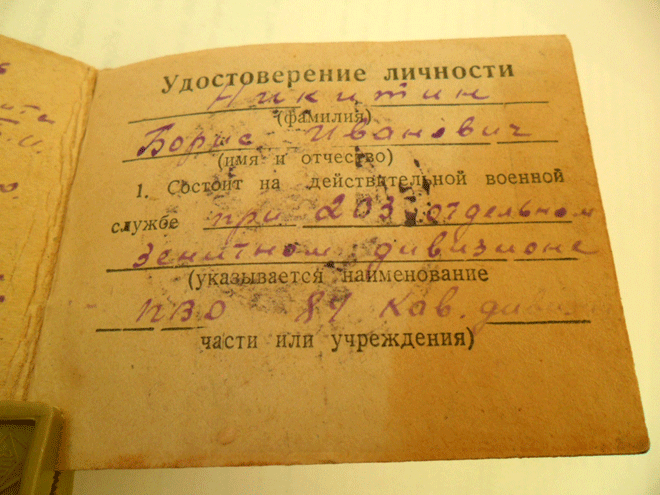 Удостоверение личности
Никитин
(фамилия)
Борис Иванович
(имя и отчество)
1. Состоит на действительной военной
службе при 203 отдельном
зенитном дивизионе
(указывается наименование
ПВО 84 Кав. дивизии
части или учреждения)